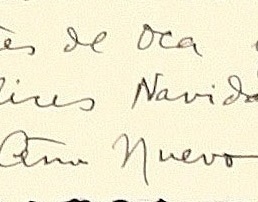 tes de Oca
lices Navida
Año Nuevo